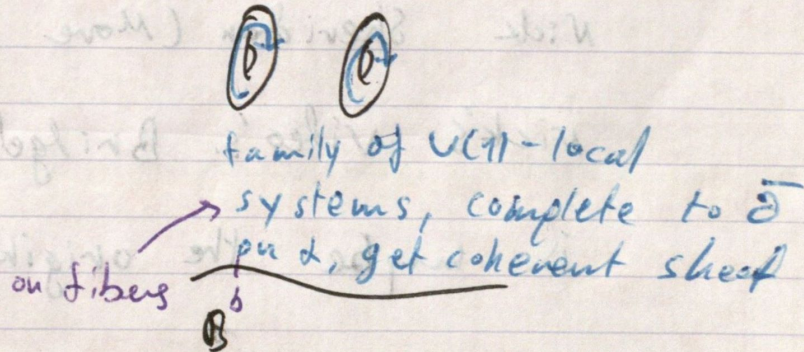 family of U(1)-local
systems, complete to ∂̄
on α, get coherent sheaf
on fibers
b
B